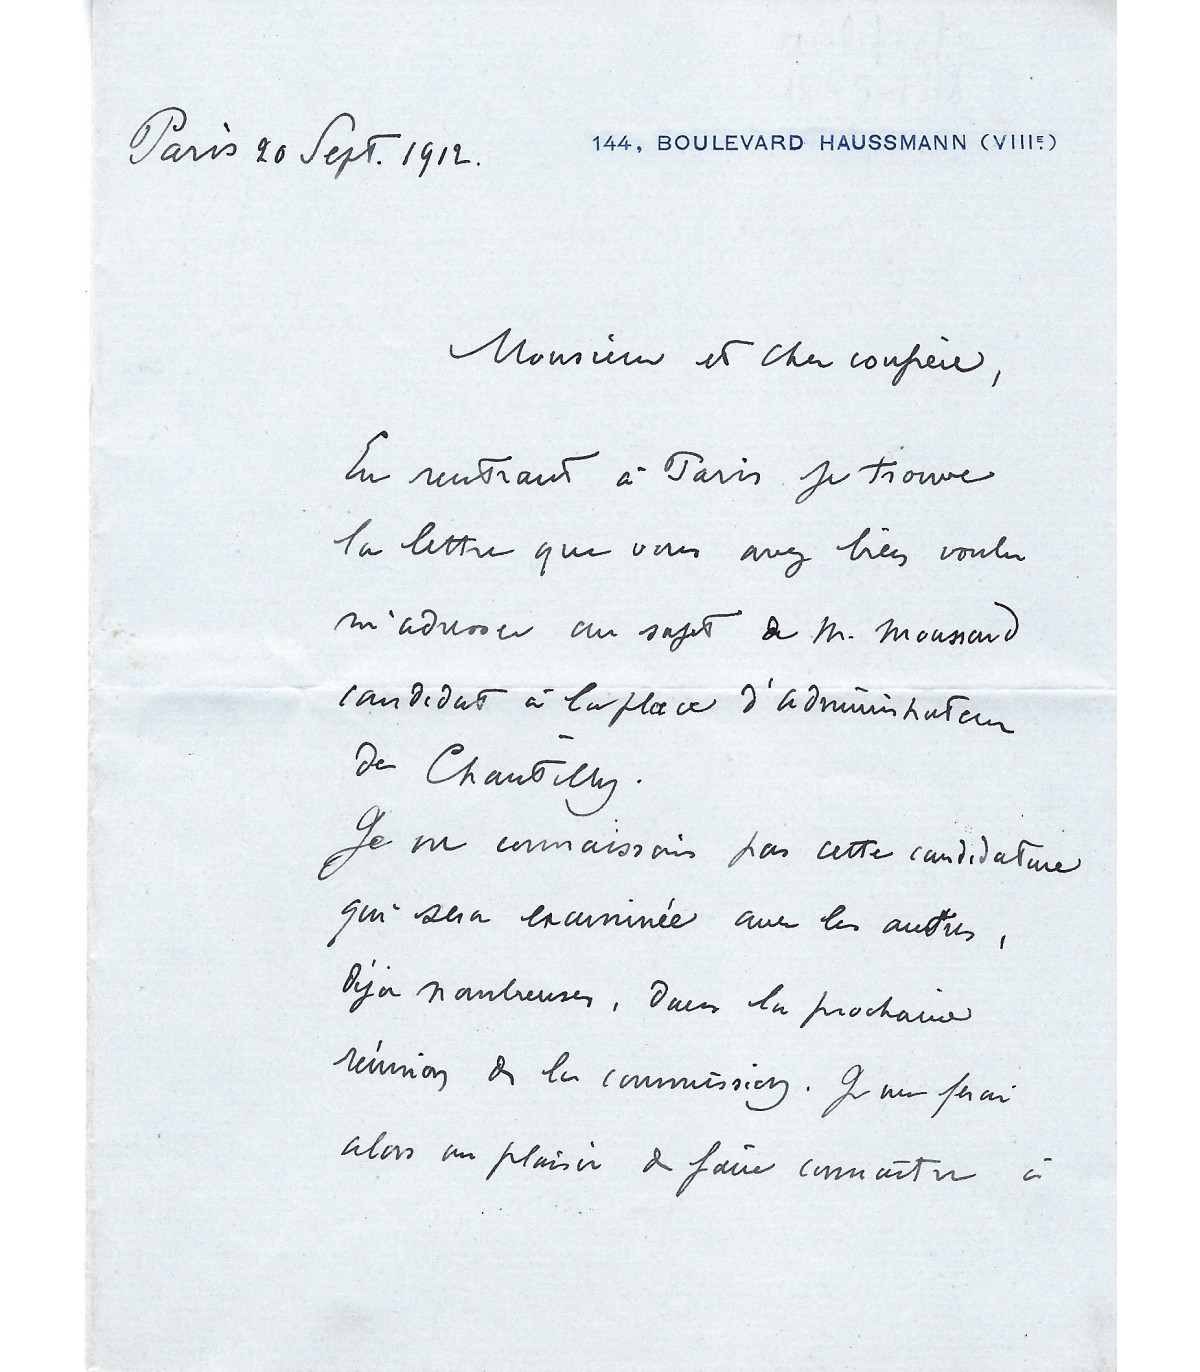 Paris 20 Sept. 1912.
144, BOULEVARD HAUSSMANN (VIIIE)
Monsieur et cher confrère,
En rentrant à Paris je trouve
la lettre que vous avez bien voulu
m'adresser au sujet de M. Moussard
candidat à la place d'administrateur
de Chantilly.
Je ne connaissais pas cette candidature
qui sera examinée avec les autres,
déjà nombreuses, dans la prochaine
réunion de la commission. Je me ferai
alors un plaisir de faire connaître à